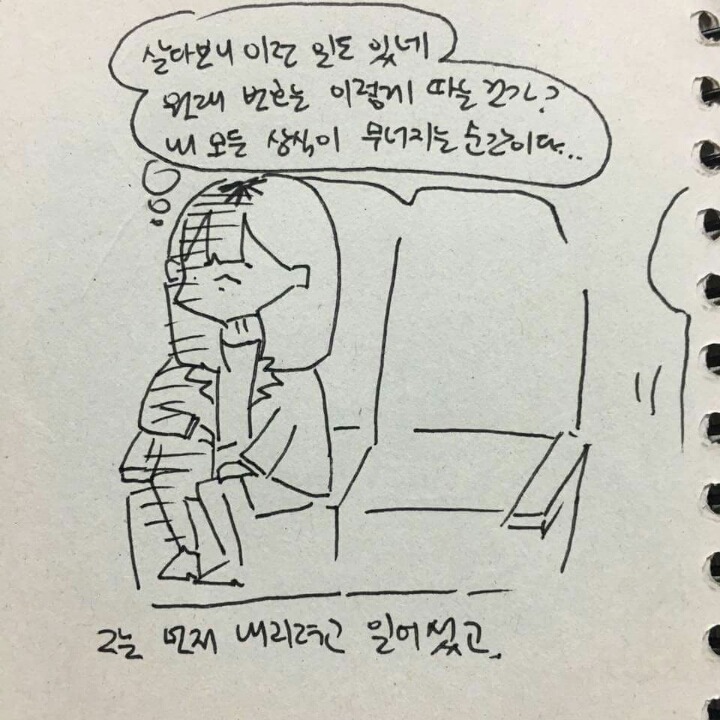 살다보니 이런 일도 있네
원래 번호는 이렇게 따는 건가?
내 모든 상식이 무너지는 순간이다...
그는 먼저 내리려고 일어섰고,